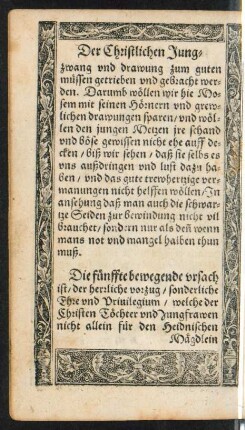 Der Christlichen Jung-
zwang vnd drawung zum guten
müssen getrieben vnd gebracht wer-
den. Darumb wöllen wir hie Mo-
sem mit seinen Hörnern vnd grew-
lichen drawungen sparen/ vnd wöl-
len den jungen Metzen jre schand
vnd böse gewissen nicht ehe auff de-
cken/ biß wir sehen/ daß sie selbs es
vns außdringen vnd lust dazu ha-
ben/ vnd das gute trewhertzige ver-
manungen nicht helffen wöllen/ In
ansehung daß man auch die schwar-
tze Seiden zur bewindung nicht vil
brauchet/ sondern nur als deñ wenn
mans not vnd mangel halben thun
muß.
Die fünffte bewegende vrsach
ist/ der herrliche vorzug/ sonderliche
Ehre vnd Priuilegium/ welche der
Christen Töchter vnd Jungfrawen
nicht allein für den Heidnischen
Mägdlein